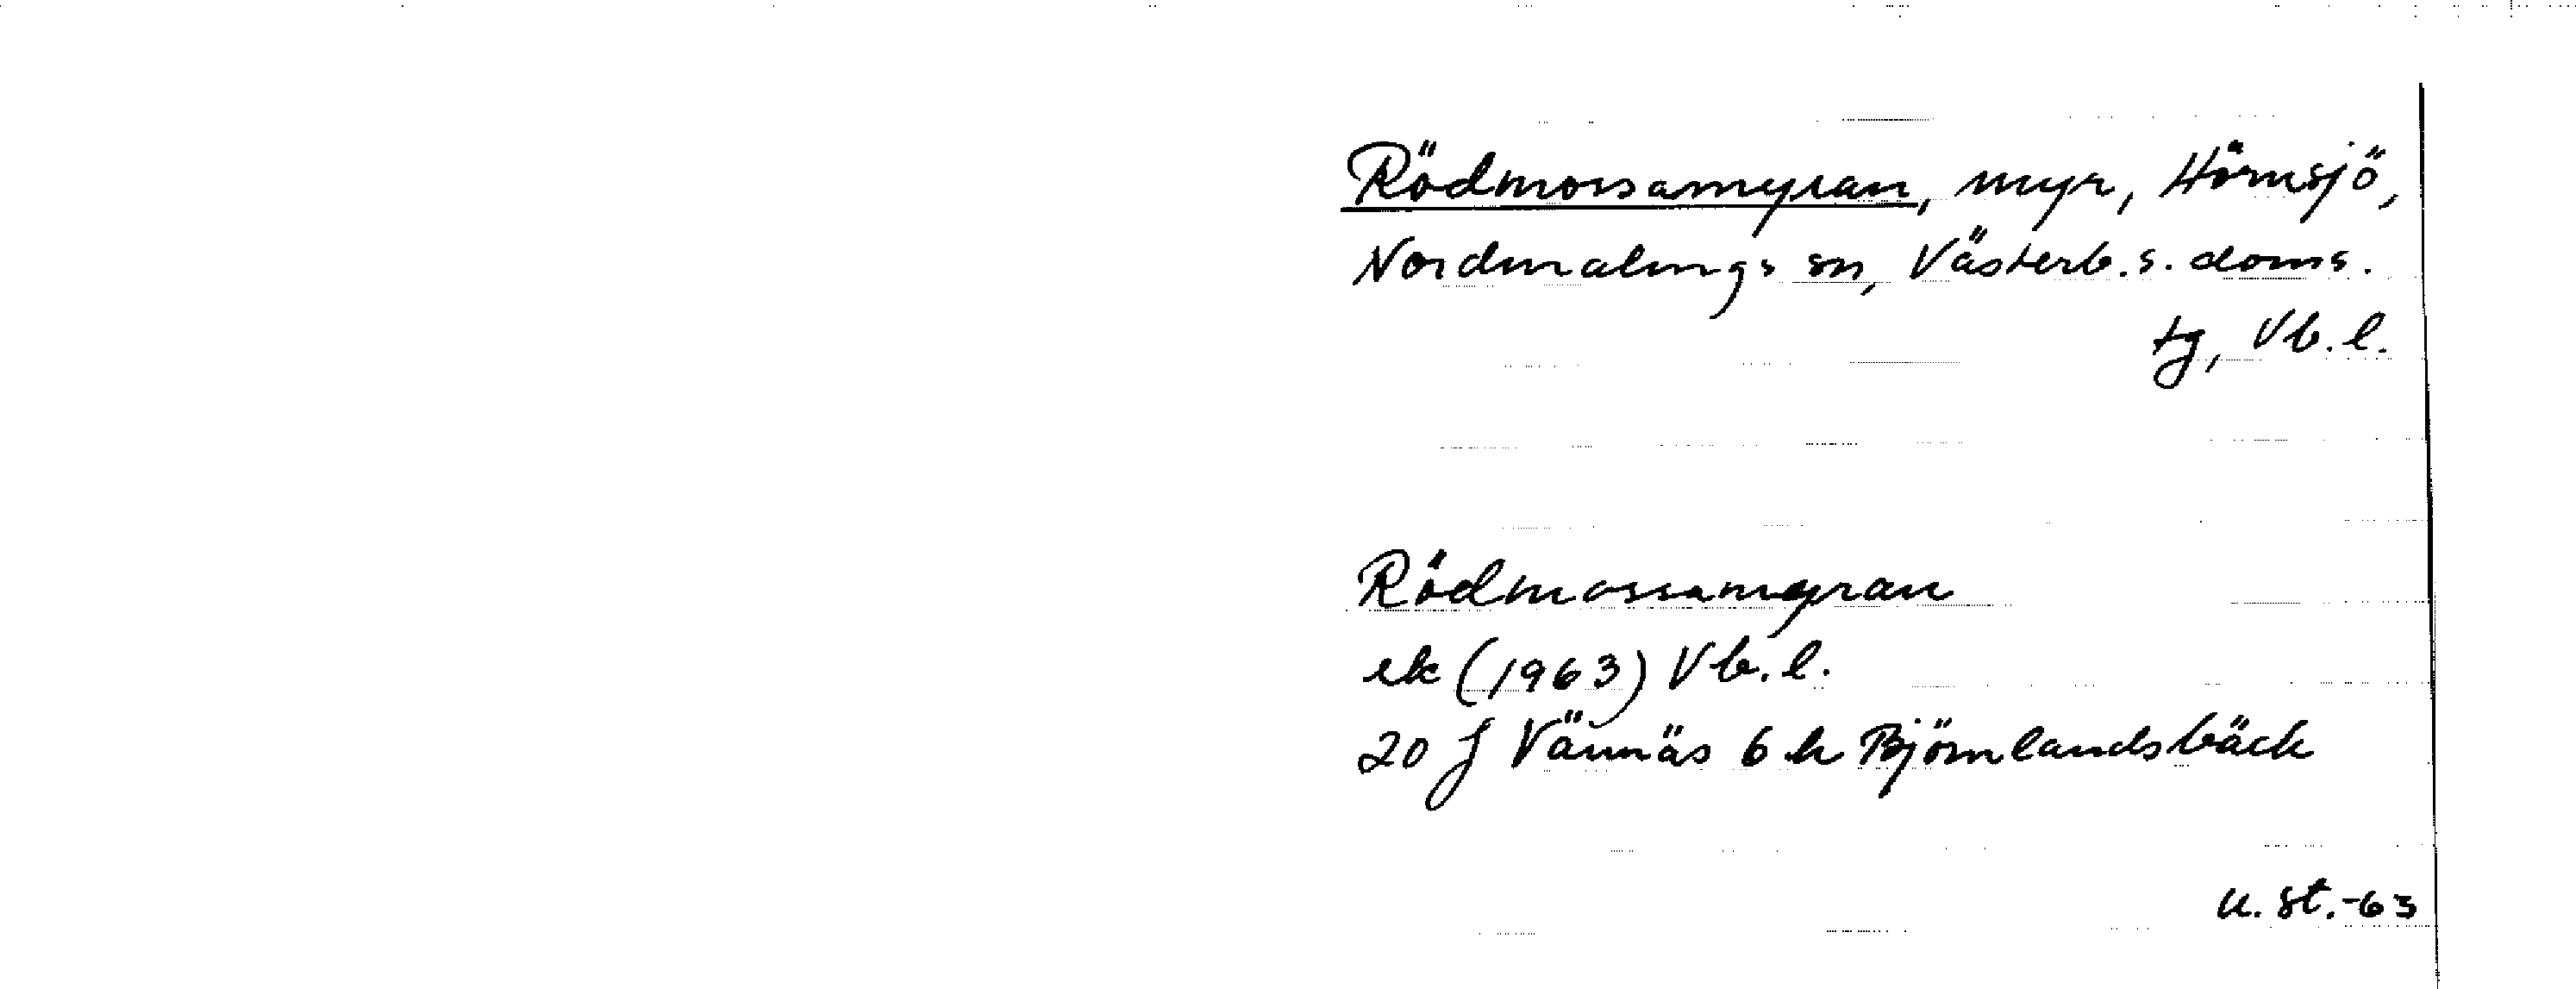 Rödmossamyran, myr, Hörnsjö,
Nordmalings sn, Västerb. s. doms.
tg, Vb. l.
Rödmossamyran
ek (1963) Vb. l.
20 J Vännäs 6 h Björnlandsbäck
U. St. -63